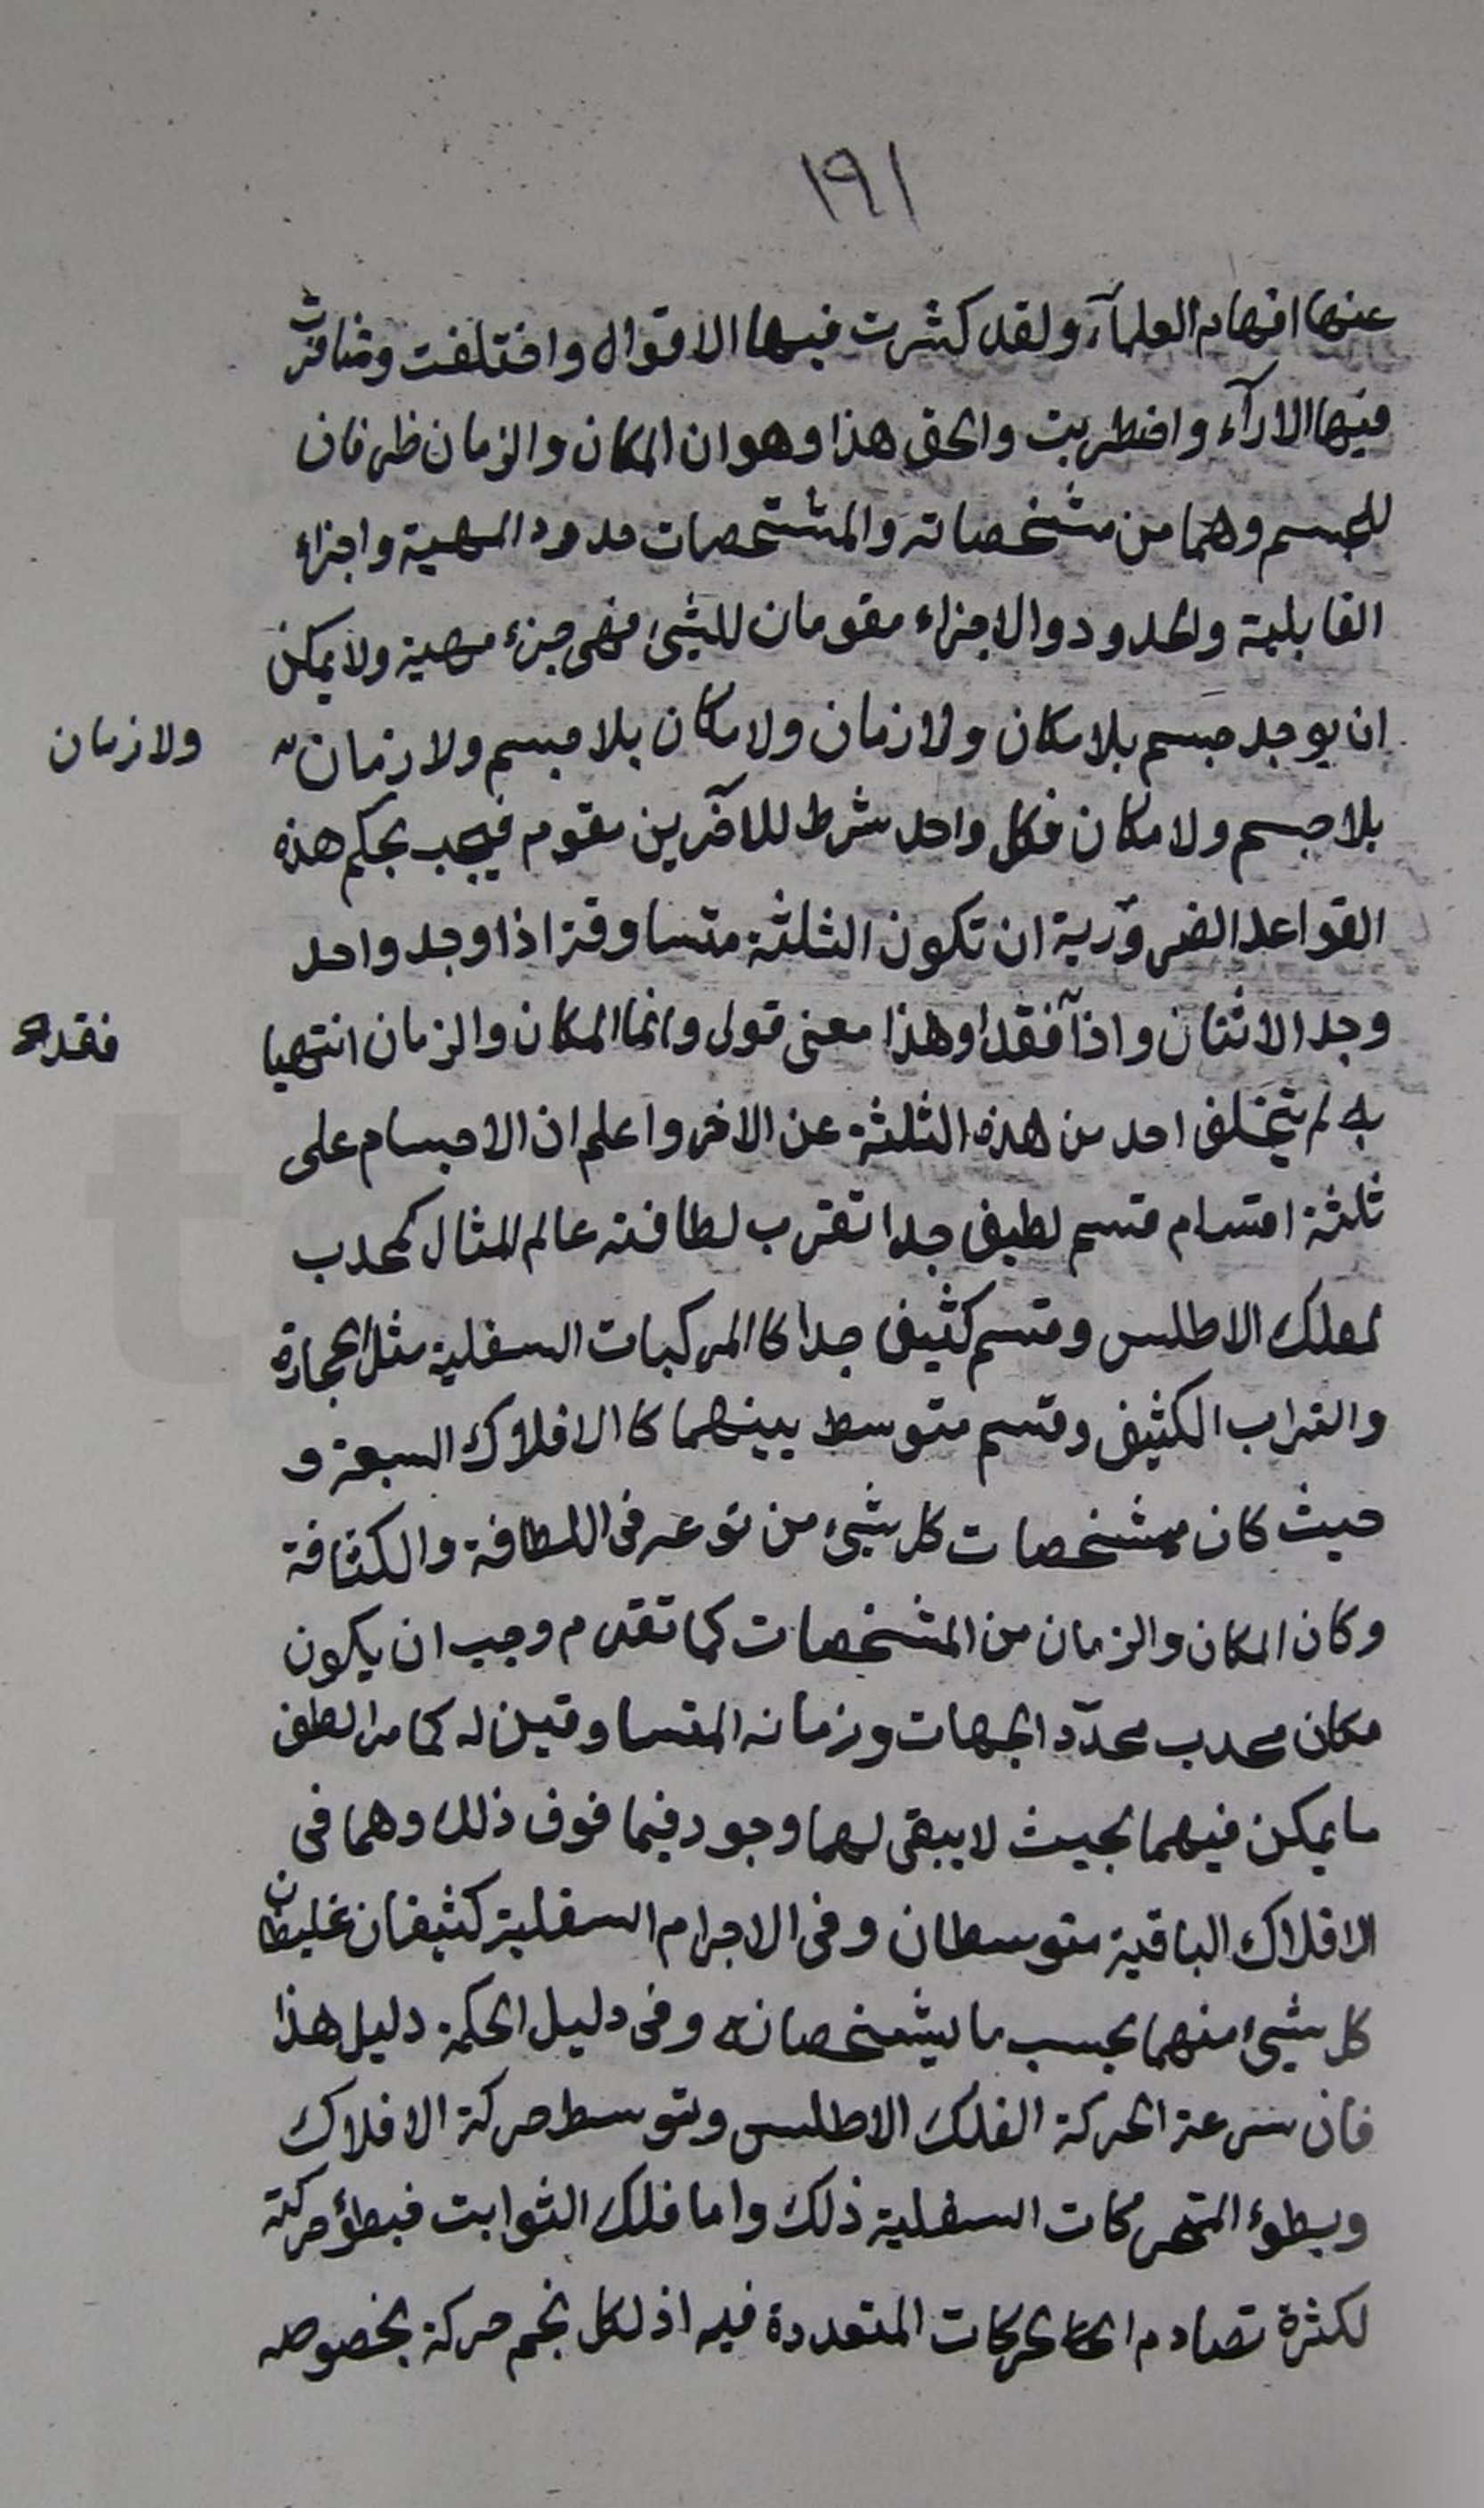 ١٩١
عنها افهام العلمآء ولقد كثرت فيها الاقوال واختلفت وتنافرت
فيها الارآء واضطربت والحق هذا وهو ان المكان والزمان ظرفان
للجسم وهما من مشخصاته والمشخصات حدود المهية واجزاء
القابلية والحدود والاجزاء مقومان للشيئ فهى جزء مهية ولا يمكن
ان يوجد جسم بلا مكان ولا زمان ولا مكان بلا جسم ولا زمان
ولا زمان
بلا جسم ولا مكان فكل واحد شرط للاخرين مقوم فيجب بحكم هذه
القواعد الضرورية ان تكون الثلثة متساوقة اذا وجد واحد
وجد الاثنان واذا فقد فقدا وهذا معنى قولى وانما المكان والزمان انتهيا
فقد
به لم يتخلف احد من هذه الثلثة عن الاخر واعلم ان الاجسام على
ثلثة اقسام قسم لطيف جدا تقرب لطافته عالم المثال كمحدب
لفلك الاطلس وقسم كثيف جدا كا المركبات السفلية مثل الحجارة
والتراب الكثيف وقسم متوسط بينهما كا الافلاك السبعة و
حيث كان مشخصات كل شيئ من نوعه فى اللطافة والكثافة
وكان المكان والزمان من المشخصات كما تقدم وجب ان يكون
مكان محدب محدّد الجهات وزمانه المتساوقين له كما مر الطف
ما يمكن فيهما بحيث لا يبقى لهما وجود فيما فوق ذلك وهما فى
الافلاك الباقية متوسطان وفى الاجرام السفلية كثيفان غليظان
كل شيئ منهما بحسب ما يشخصانه وفى دليل الحكمة دليل هذا
فان سرعة الحركة الفلك الاطلس وتوسط حركة الافلاك
وبطوء المتحركات السفلية ذلك واما فلك الثوابت فبطؤ حركته
لكثرة تصادم الحركات المتعددة فيه اذ لكل نجم حركة بخصوصه